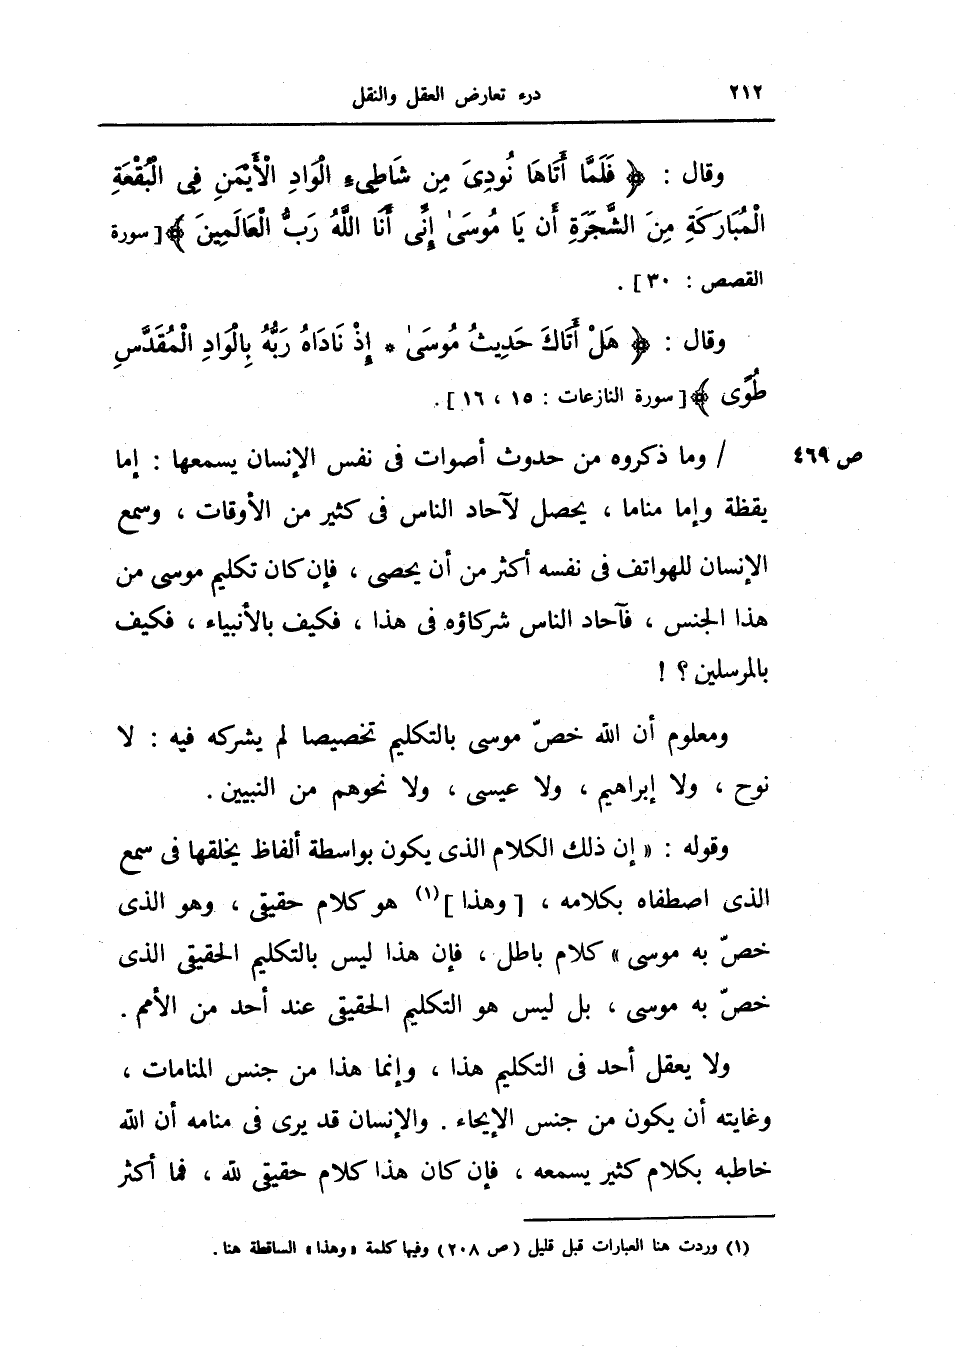 ٢١٢ درء تعارض العقل والنقل
وقال : ﴿ فَلَمَّا أَتَاهَا نُودِىَ مِن شَاطِىءِ الْوَادِ الْأَيْمَنِ فِى الْبُقْعَةِ
الْمُبَارَكَةِ مِنَ الشَّجَرَةِ أَن يَا مُوسَىٰ إِنِّى أَنَا اللَّهُ رَبُّ الْعَالَمِينَ ﴾ [ سورة
القصص : ٣٠ ] .
وقال : ﴿ هَلْ أَتَاكَ حَدِيثُ مُوسَىٰ * إِذْ نَادَاهُ رَبُّهُ بِالْوَادِ الْمُقَدَّسِ
طُوًى ﴾ [ سورة النازعات : ١٥ ، ١٦ ] .
ص ٤٦٩ / وما ذكروه من حدوث أصوات فى نفس الإنسان يسمعها : إما
يقظة وإما مناما ، يحصل لآحاد الناس فى كثير من الأوقات ، وسمع
الإنسان للهواتف فى نفسه أكثر من أن يحصى ، فإن كان تكليم موسى من
هذا الجنس ، فآحاد الناس شركاؤه فى هذا ، فكيف بالأنبياء ، فكيف
بالمرسلين ؟ !
ومعلوم أن الله خصّ موسى بالتكليم تخصيصا لم يشركه فيه : لا
نوح ، ولا إبراهيم ، ولا عيسى ، ولا نحوهم من النبيين .
وقوله : « إن ذلك الكلام الذى يكون بواسطة ألفاظ يخلقها فى سمع
الذى اصطفاه بكلامه ، [ وهذا ] (١) هو كلام حقيقى ، وهو الذى
خصّ به موسى » كلام باطل ، فإن هذا ليس بالتكليم الحقيقى الذى
خصّ به موسى ، بل ليس هو التكليم الحقيقى عند أحد من الأمم .
ولا يعقل أحد فى التكليم هذا ، وإنما هذا من جنس المنامات ،
وغايته أن يكون من جنس الإيحاء . والإنسان قد يرى فى منامه أن الله
خاطبه بكلام كثير يسمعه ، فإن كان هذا كلام حقيقى لله ، فما أكثر
(١) وردت هنا العبارات قبل قليل ( ص ٢٠٨ ) وفيها كلمة « وهذا » الساقطة هنا .